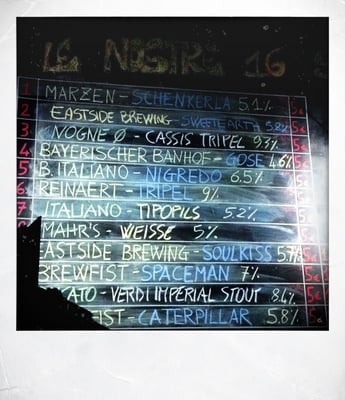 LE NOSTRE 16
1 MARZEN - SCHENKERLA 5.1% 5€
2 EASTSIDE BREWING SWEETEARTH 5.8%
3 NOGNE Ø - CASSIS TRIPEL 9.3%
4 BAYERISCHER BANHOF - GOSE 4.6% 5€
5 B. ITALIANO - NIGREDO 6.5% 5€
6 REINAERT - TRIPEL 9% 5€
7 ITALIANO - TIPOPILS 5.2% 5€
MAHR'S - WEISSE 5% 5€
EASTSIDE BREWING - SOULKISS 5.7% 5€
BREWFIST - SPACEMAN 7% 5€
ATO - VERDI IMPERIAL STOUT 8.4% 5€
IST - CATERPILLAR 5.8% 5€